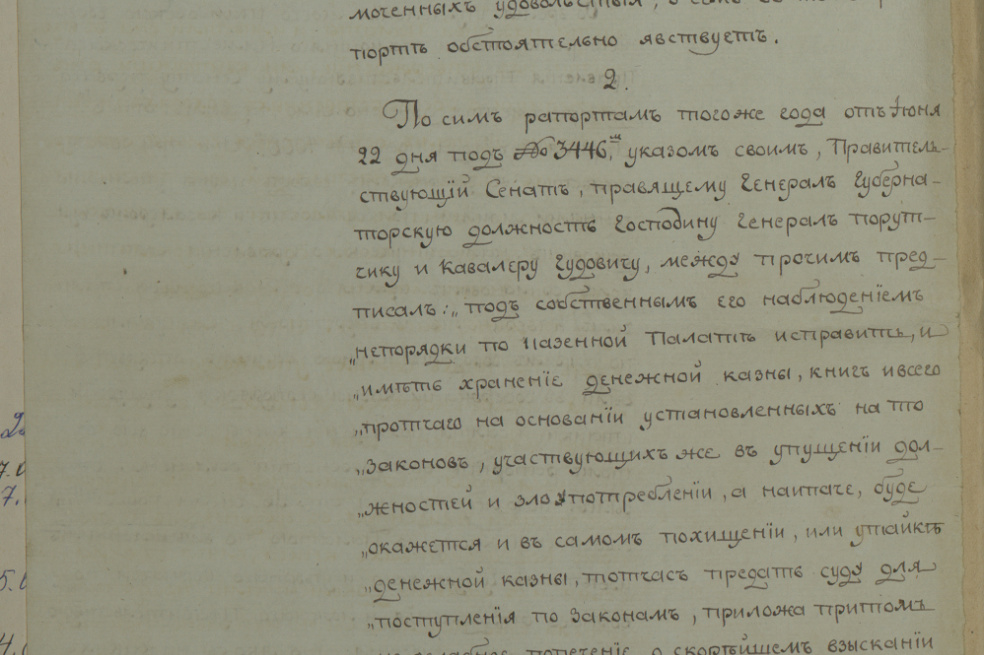 моченныхъ удовольствия, о семъ
портѣ обстоятельно явствуетъ.
2.
По симъ рапортамъ тогоже года отъ Іюня
22 дня подъ № 3446.мъ указомъ своимъ, Правитель-
ствующій Сенатъ, правящему Генералъ Губерна-
торскую должность Господину Генералъ порут-
чику и Кавалеру Гудовичу, между прочимъ пред-
писалъ: „подъ собственнымъ его наблюденіемъ
„непорядки по Казенной Палатѣ исправить, и
„имѣть храненіе денежной казны, книгъ и всего
„протчаго на основаніи установленныхъ на то
„законовъ, участвующихъ же въ упущеніи дол-
„жностей и злоупотребленіи, а наипаче, буде
„окажется и въ самомъ похищеніи, или утайкѣ
„денежной казны, тотчасъ предать суду для
„поступленія по законамъ, приложа притомъ
попеченіе о скорѣйшемъ взысканіи
2
7.0
7.
5.0
4.